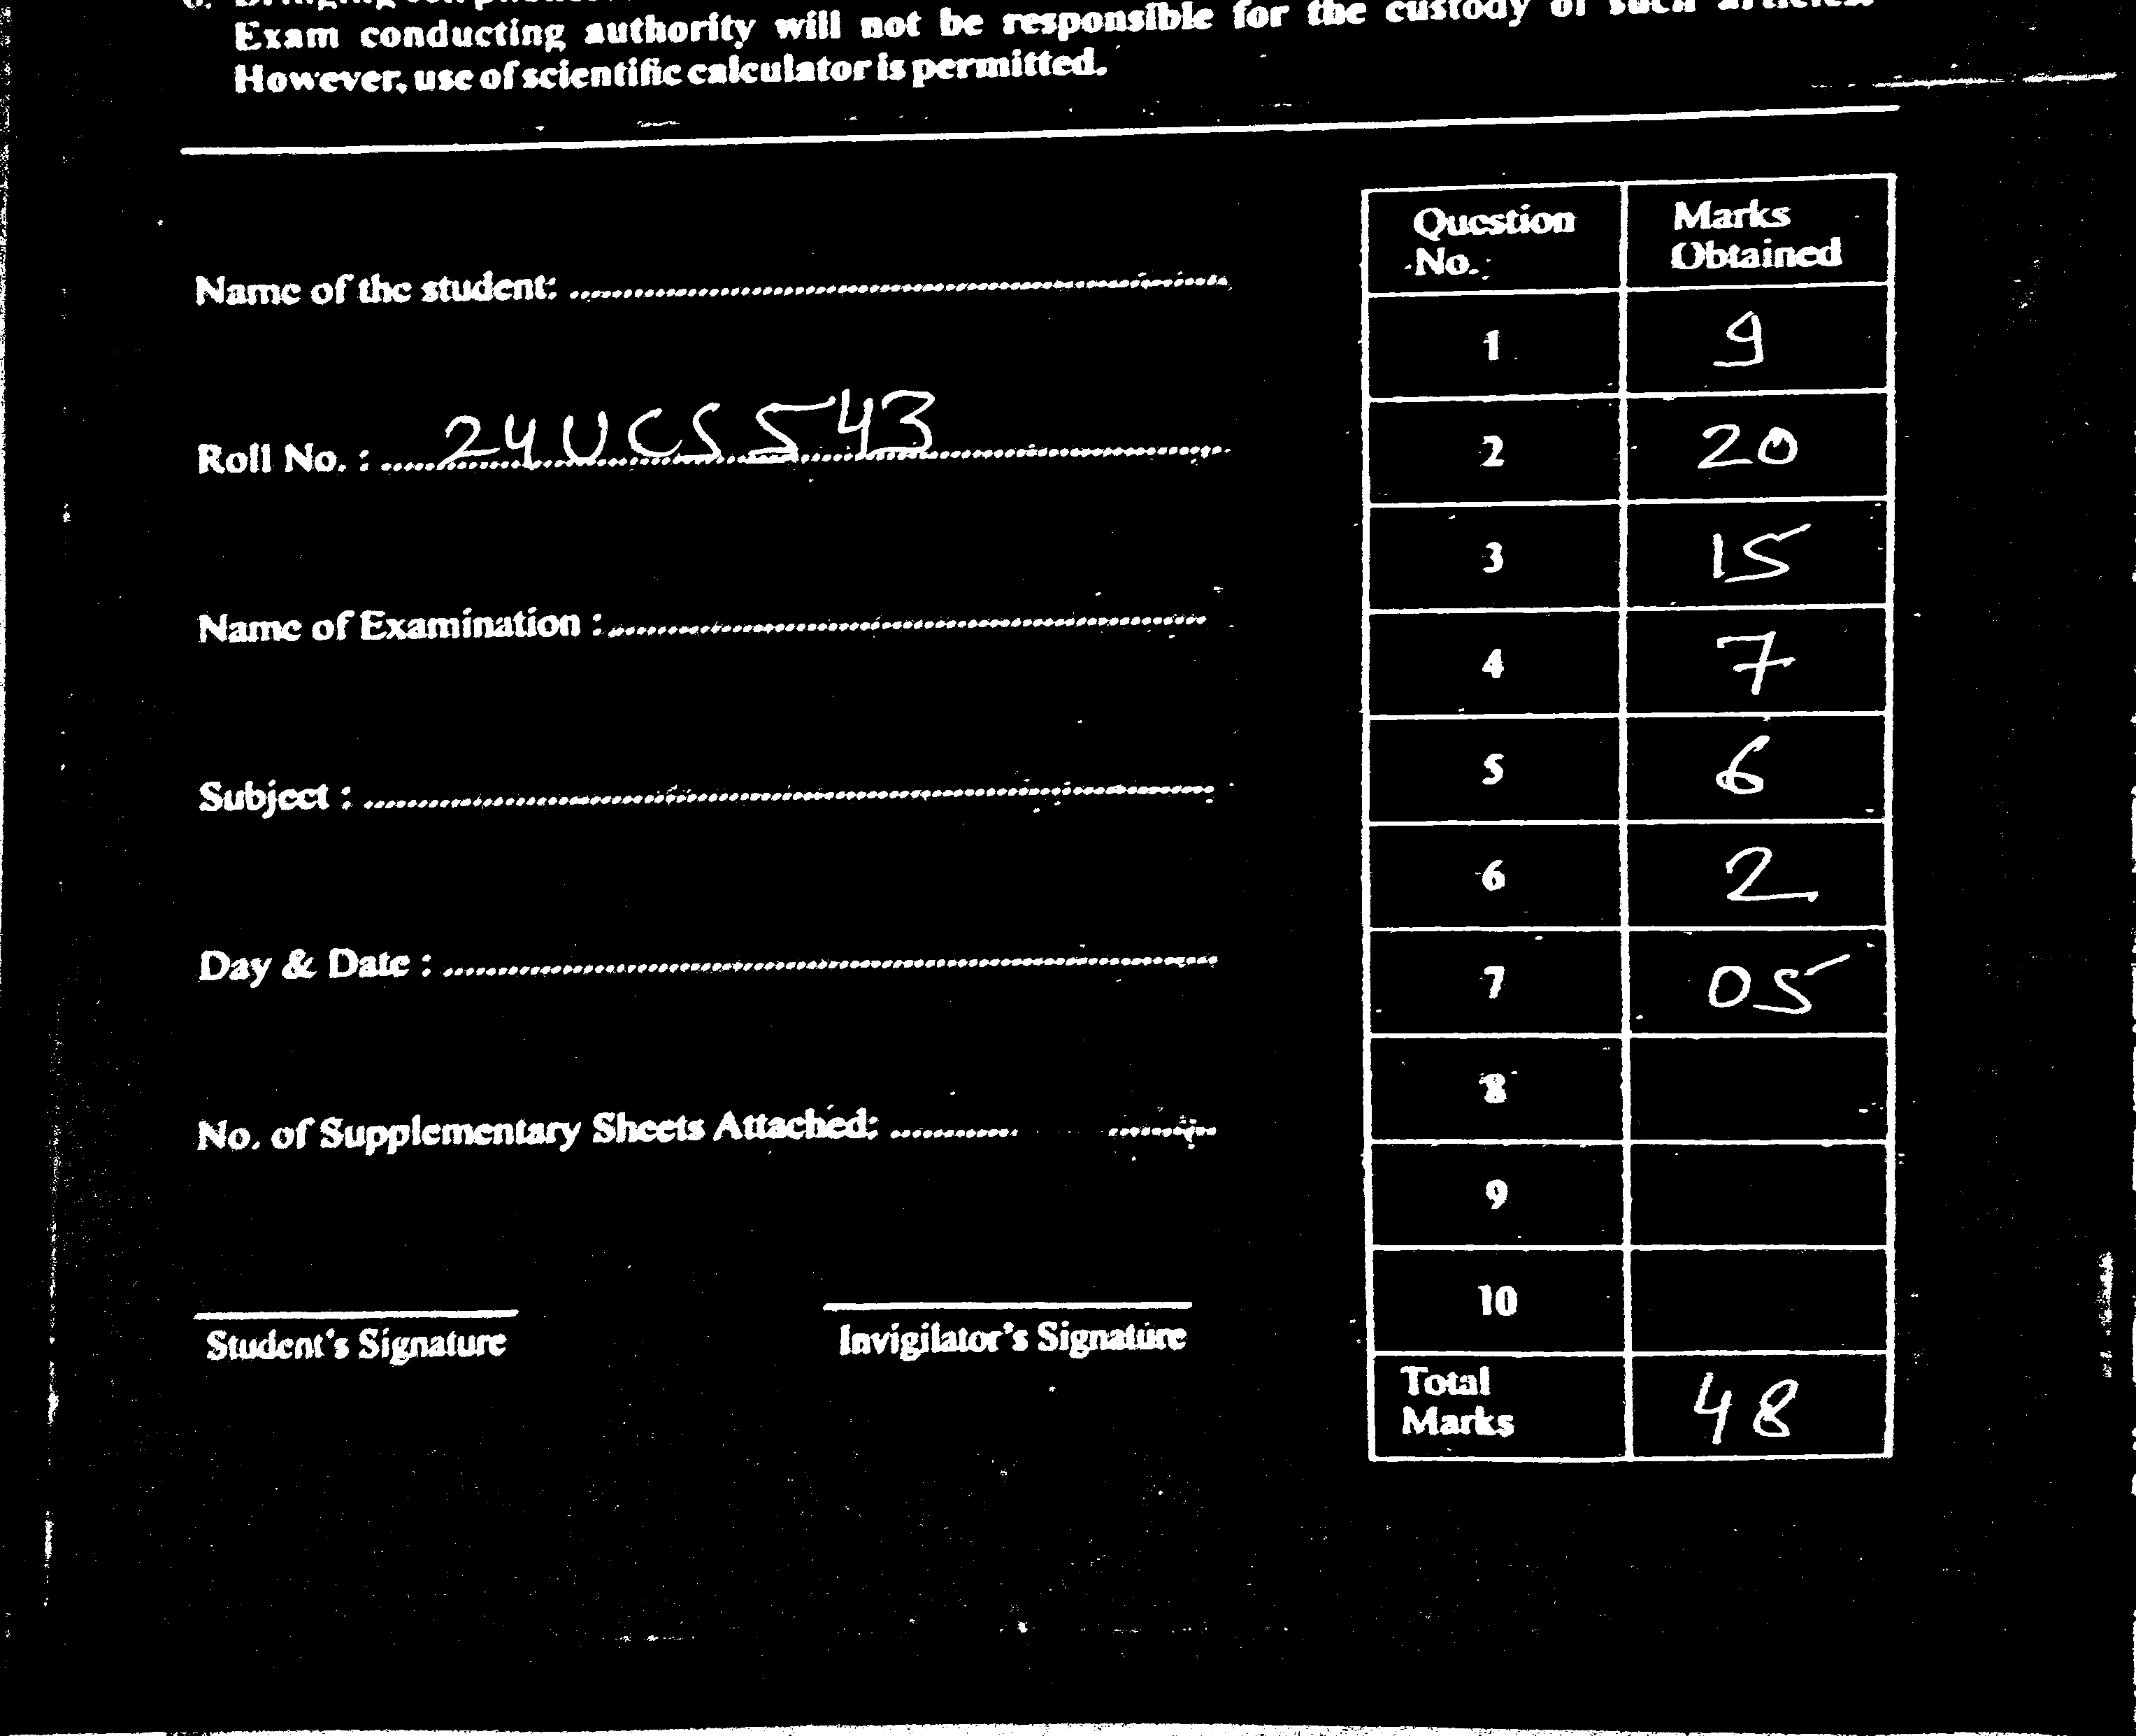 Exam conducting authority will not be responsible for the custody of such articles.
However, use of scientific calculator is permitted.
Name of the student:
Roll No. : 24UCS543
Name of Examination :
Subject :
Day & Date :
No. of Supplementary Sheets Attached:
Student's Signature
Invigilator's Signature
Question No. Marks Obtained
1 9
2 20
3 15
4 7
5 6
6 2
7 05
8
9
10
Total Marks 48